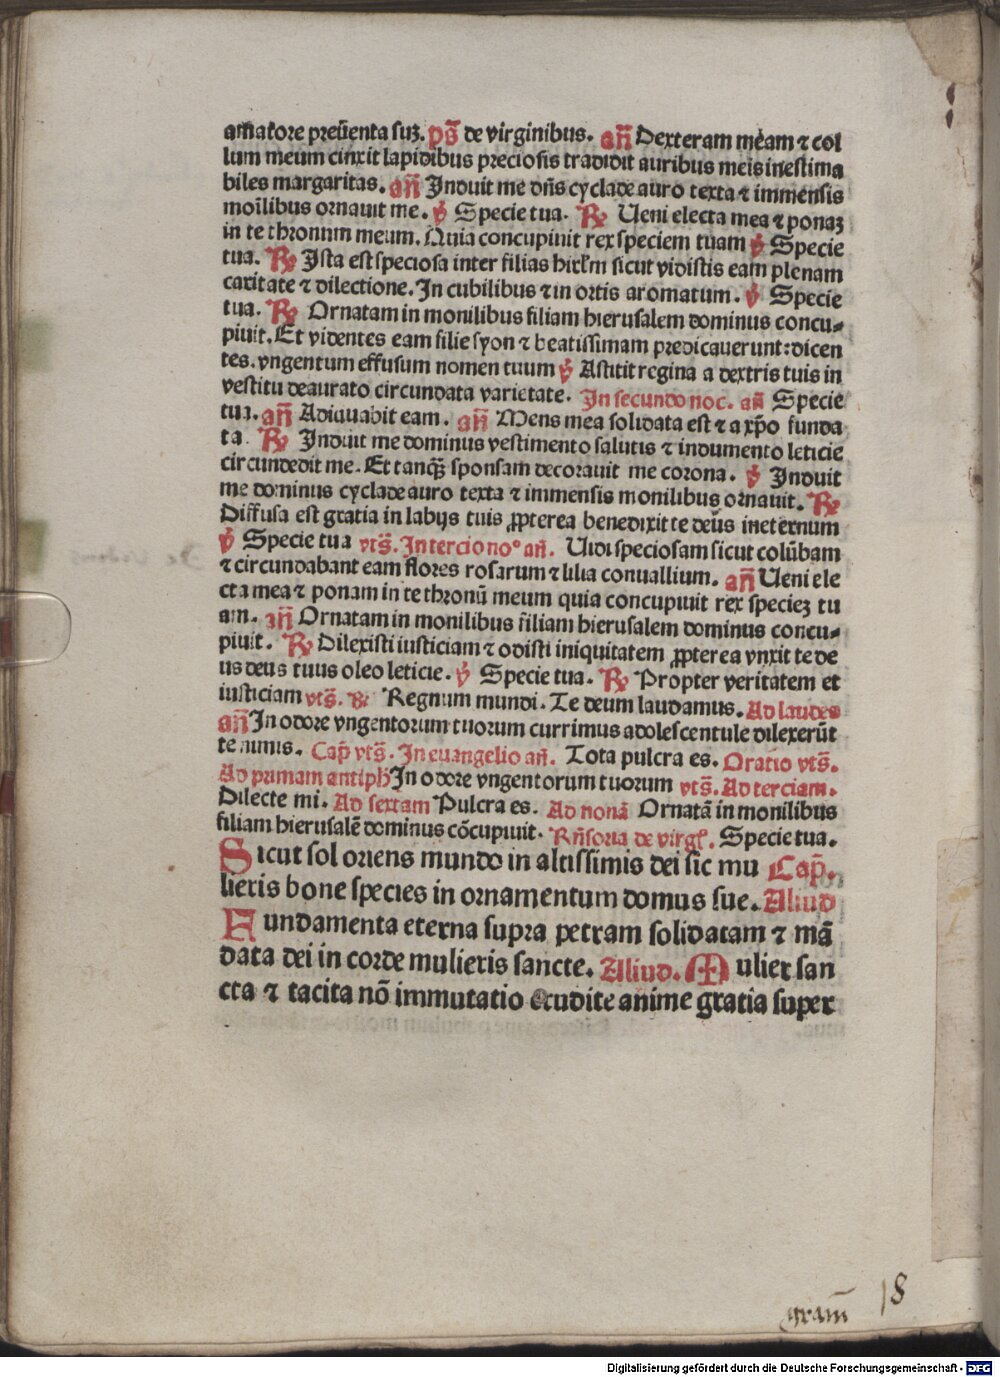 amatore preūenta suꝫ. ps̄ de virginibus. an̄ Dexteram meam ⁊ col
lum meum cinxit lapidibus preciosis tradidit auribus meis inestima
biles margaritas. an̄ Induit me dn̄s cyclade auro texta ⁊ immensis
monīlibus ornauit me. ℣ Specie tua. ℞ Ueni electa mea ⁊ ponaꝫ
in te thronum meum. Quia concupiuit rex speciem tuam ℣ Specie
tua. ℞ Ista est speciosa inter filias hirl̄m sicut vidistis eam plenam
caritate ⁊ dilectione. In cubilibus ⁊ in ortis aromatum. ℣ Specie
tua. ℞ Ornatam in monilibus filiam hierusalem dominus concu⸗
piuit. Et videntes eam filie syon ⁊ beatissimam predicauerunt: dicen
tes. vngentum effusum nomen tuum ℣ Astitit regina a dextris tuis in
vestitu deaurato circundata varietate. In secundo noc. an̄ Specie
tua. an̄ Adiauabit eam. an̄ Mens mea solidata est ⁊ a xp̄o funda
ta. ℞ Induit me dominus vestimento salutis ⁊ indumento leticie
circundedit me. Et tanqꝫ sponsam decorauit me corona. ℣ Induit
me dominus cyclade auro texta ⁊ immensis monilibus ornauit. ℞
Diffusa est gratia in labijs tuis ꝓpterea benedixit te deus ineternum
℣ Specie tua vts̄. In tercio noº an̄. Uidi speciosam sicut colūbam
⁊ circundabant eam flores rosarum ⁊ lilia conuallium. an̄ Ueni ele
cta mea ⁊ ponam in te thronū meum quia concupiuit rex specieꝫ tu
am. an̄ Ornatam in monilibus filiam hierusalem dominus concu⸗
piuit. ℞ Dilexisti iusticiam ⁊ odisti iniquitatem ꝓpterea vnxit te de
us deus tuus oleo leticie. ℣ Specie tua. ℞ Propter veritatem et
iusticiam vts̄. ℞ Regnum mundi. Te deum laudamus. Ad laudes
an̄ In odore vngentorum tuorum currimus adolescentule dilexerūt
te nimis. Cap̄ vts̄. In euangelio an̄. Tota pulcra es. Oratio vts̄.
Ad primam antiph̄ In odore vngentorum tuorum vts̄. Ad terciam.
Dilecte mi. Ad sextam Pulcra es. Ad nonā Ornatā in monilibus
filiam hierusalē dominus cōcupiuit. Rn̄soria de virgl̄. Specie tua.
Sicut sol oriens mundo in altissimis dei sic mu Cap̄.
lieris bone species in ornamentum domus sue. Aliud
Fundamenta eterna supra petram solidatam ⁊ mā
data dei in corde mulieris sancte. Aliud. Mulier san
cta ⁊ tacita nō immutatio erudite anime gratia super
gram̄ 18
Digitalisierung gefördert durch die Deutsche Forschungsgemeinschaft - DFG